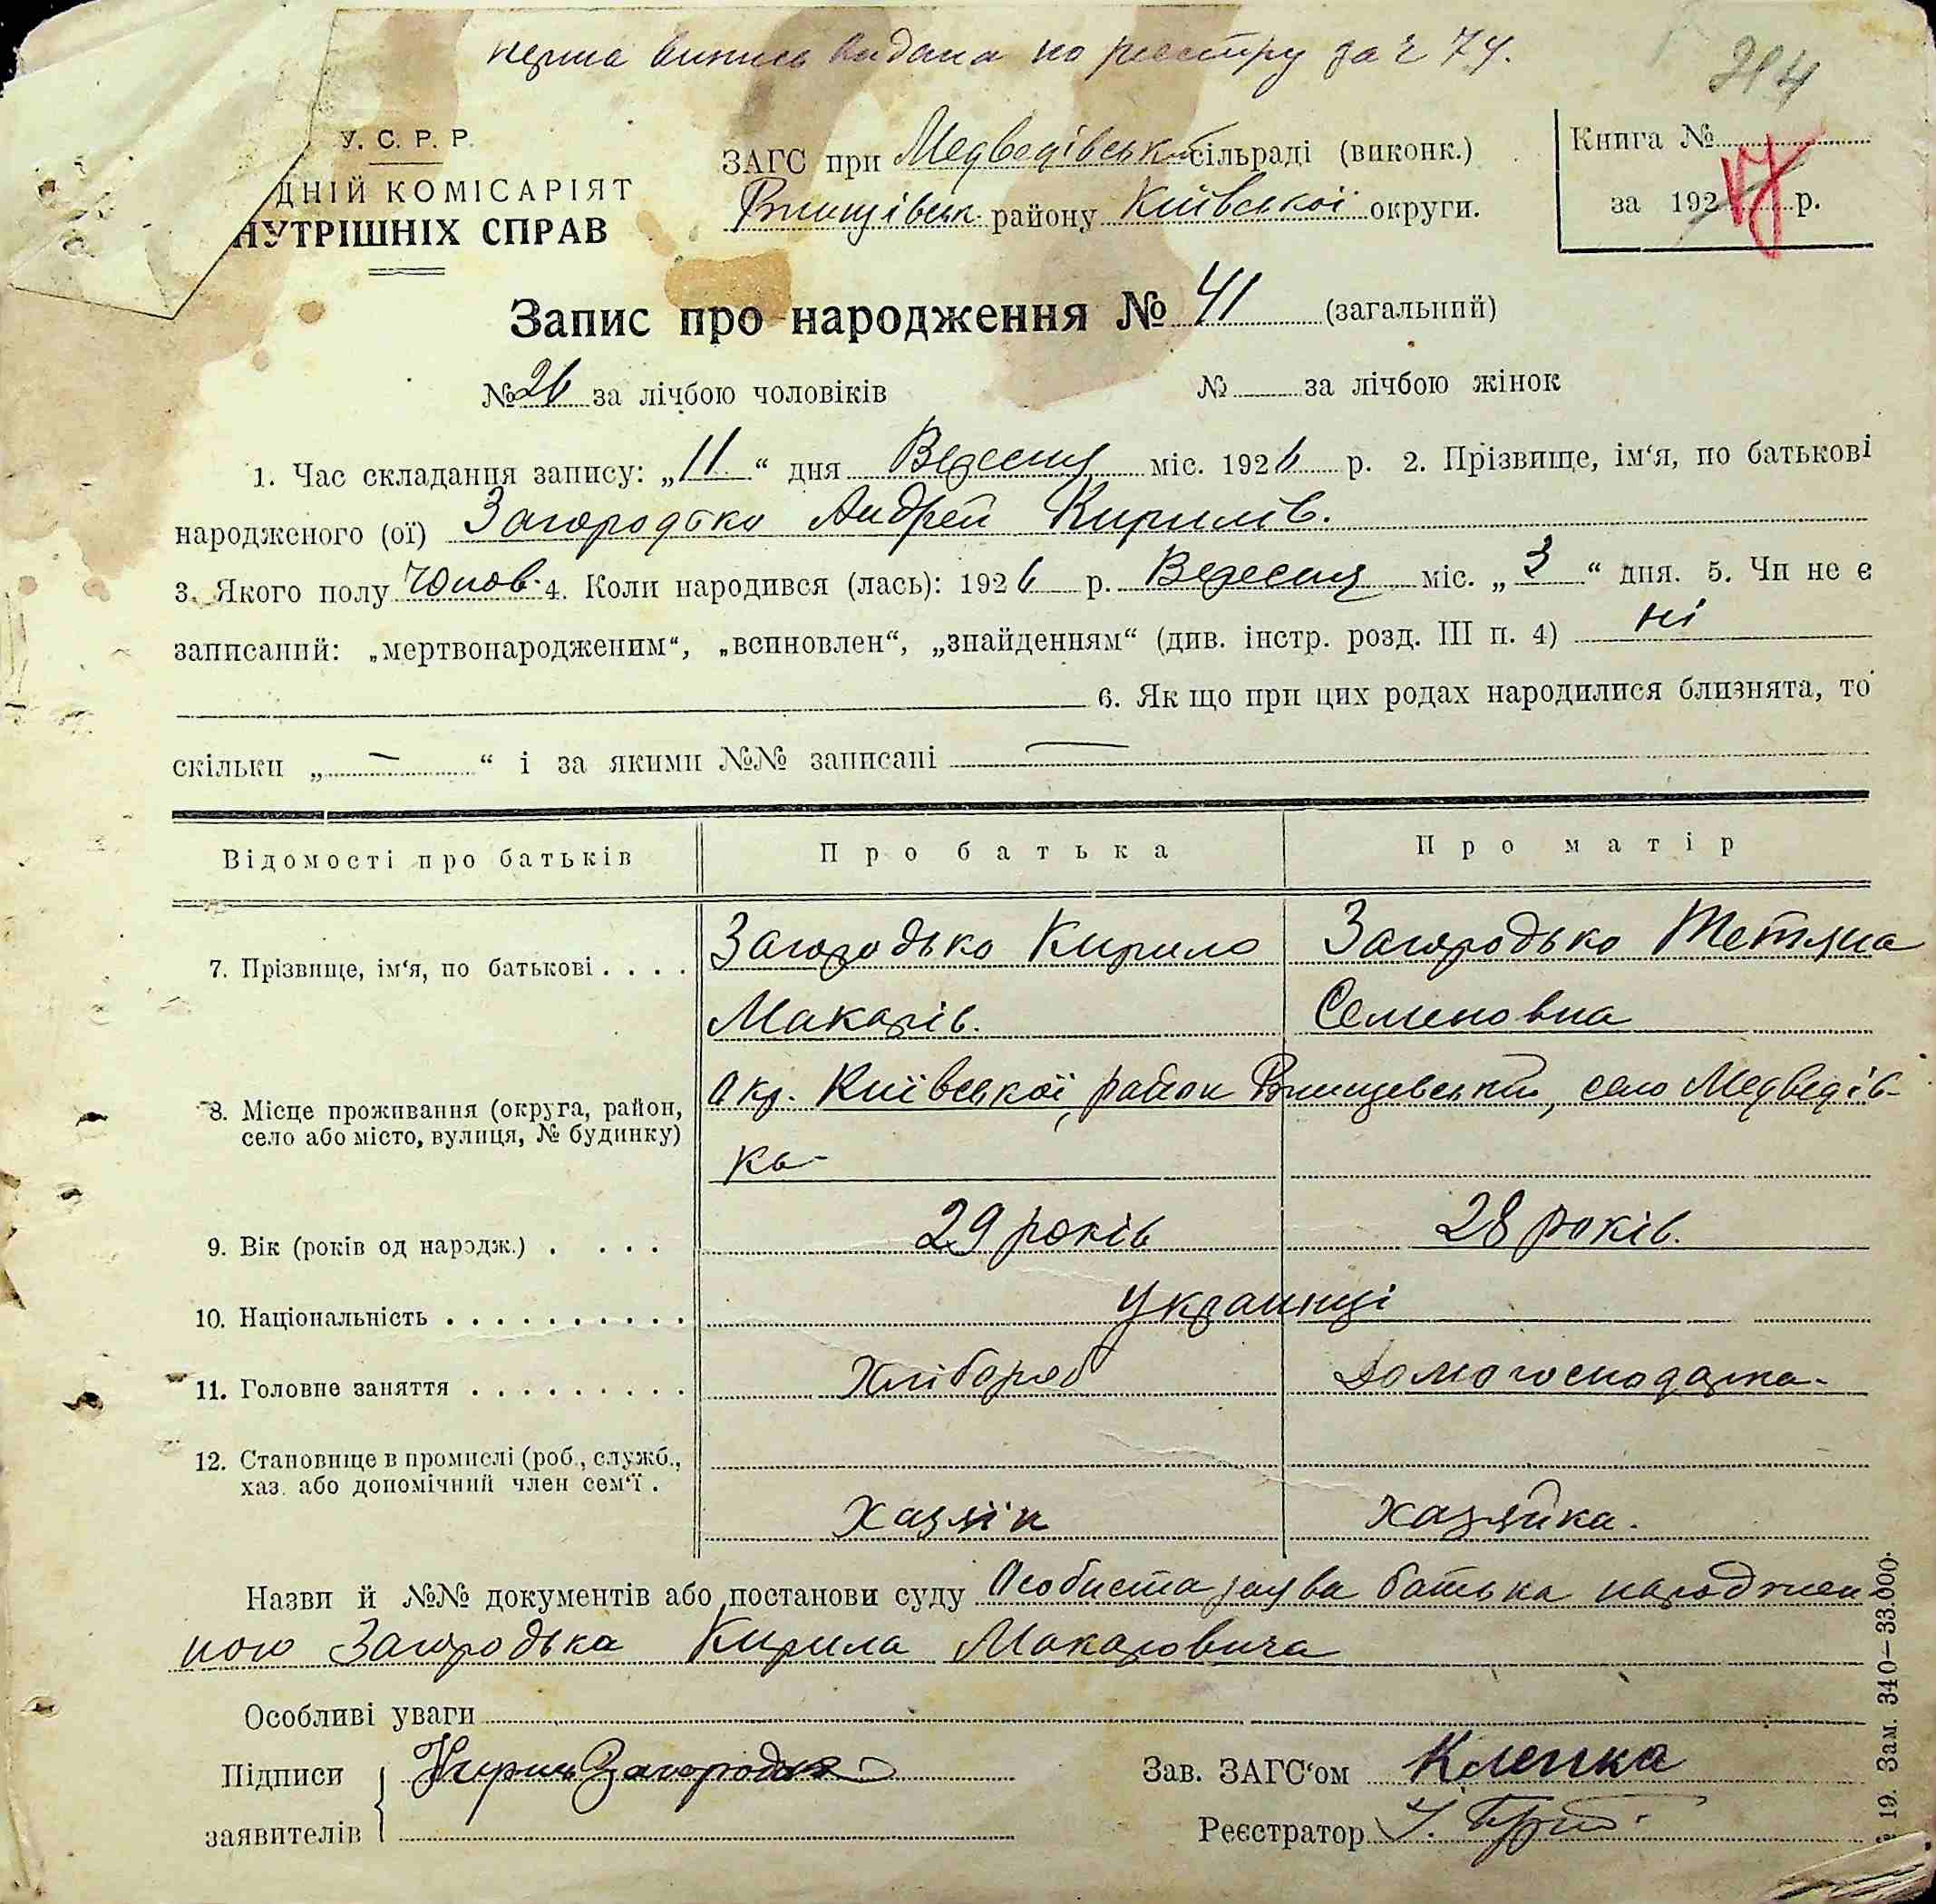 перша випись видана по реєстру за № 74.
294
У. С. Р. Р.
ДНІЙ КОМІСАРІЯТ
НУТРІШНІХ СПРАВ
ЗАГС при Медведівськ. сільраді (виконк.)
району Київської округи.
Книга №
за 192 р.
Запис про народження № 41 (загальний)
№ 26 за лічбою чоловіків № за лічбою жінок
1. Час складання запису: „11“ дня Вересня міс. 1926 р. 2. Прізвище, ім‘я, по батькові
народженого (ої) Загородько Андрей Кирилів.
3. Якого полу Чолов. 4. Коли народився (лась): 1926 р. Вересня міс. „3“ дня. 5. Чи не є
записаний: „мертвонародженим“, „всиновлен“, „знайденням“ (див. інстр. розд. III п. 4) ні
6. Як що при цих родах народилися близнята, то
скільки „ — “ і за якими №№ записані —
Відомості про батьків Про батька Про матір
7. Прізвище, ім‘я, по батькові . . . . Загородько Кирило Загородько Тетяна
Макарів. Семеновна
8. Місце проживання (округа, район, Окр. Київської, район село Медведів-
село або місто, вулиця, № будинку)
ка-
9. Вік (років од народж.) . . . . 29 років 28 років.
10. Національність . . . . . . . . . . Украинці
11. Головне заняття . . . . . . . . . Хлібороб Домогосподарка-
12. Становище в промислі (роб., служб.,
хаз. або допомічний член сем‘ї .
Хазяїн хазяйка.
Назви й №№ документів або постанови суду Особиста заява батька народжен
ного Загородька Кирила Макаровича
Особливі уваги
Підписи Кирило Загородько Зав. ЗАГС‘ом Клепка
заявителів Реєстратор
19. Зам. 340—33.000.